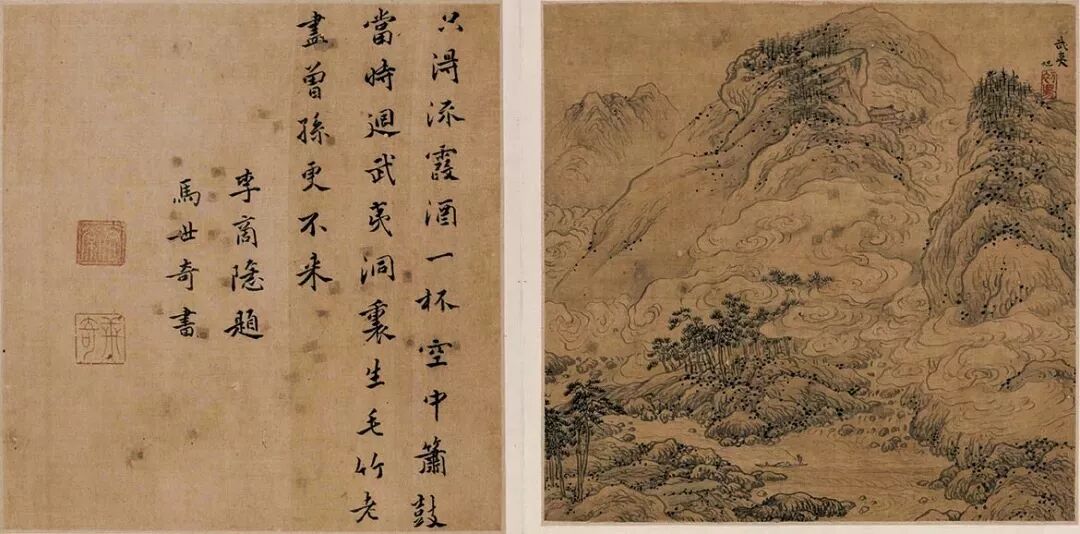 武夷
只得流霞酒一杯空中簫鼓
當時迴武夷洞裏生毛竹老
盡曾孫更不来
李商隱題
馬世奇書